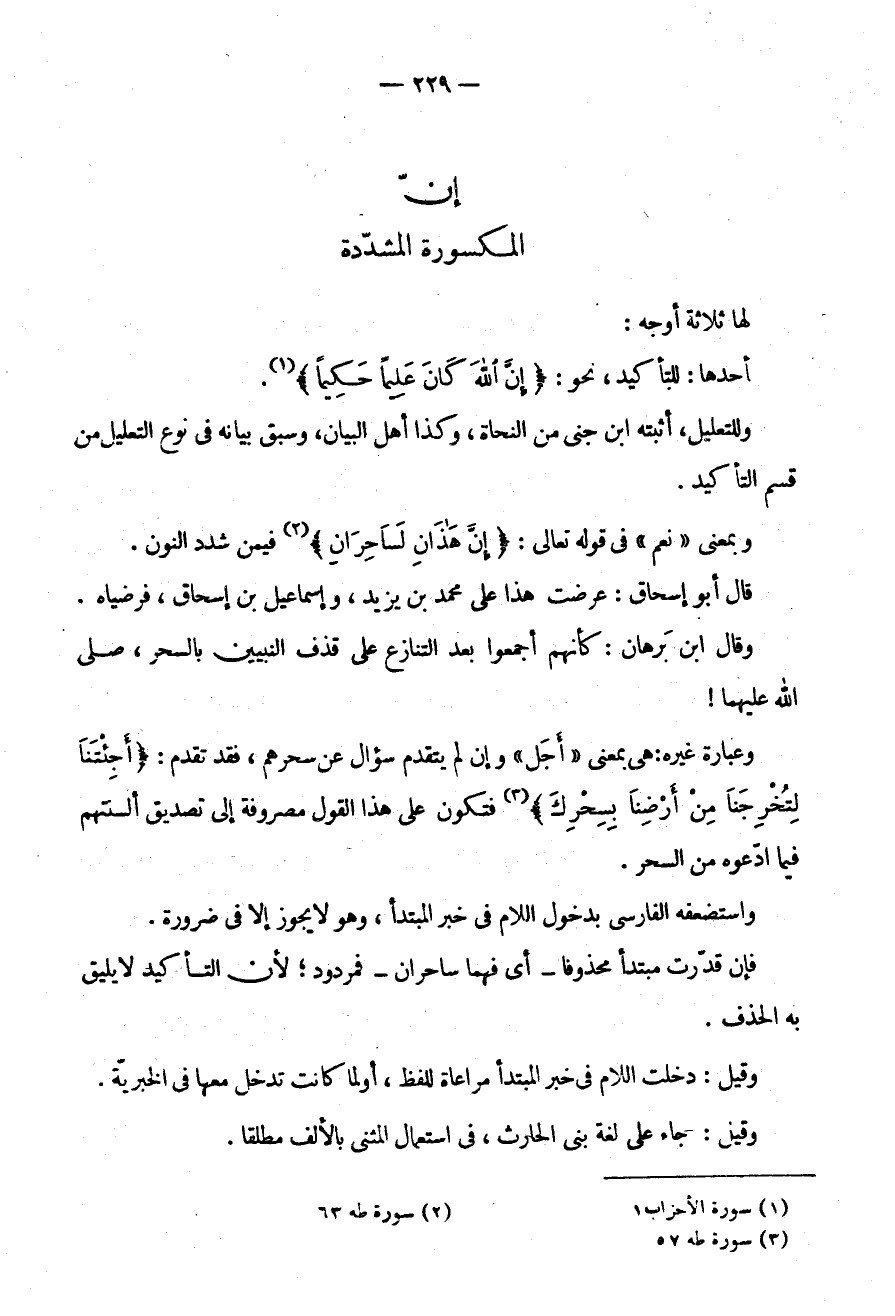 — ٢٢٩ —
إنّ
المكسورة المشدّدة
لها ثلاثة أوجه :
أحدها : للتأكيد ، نحو : ﴿ إِنَّ ٱللهَ كَانَ عَلِيماً حَكِيماً ﴾(١) .
وللتعليل ، أثبته ابن جنى من النحاة ، وكذا أهل البيان ، وسبق بيانه فى نوع التعليل من
قسم التأكيد .
وبمعنى « نعم » فى قوله تعالى : ﴿ إِنَّ هَٰذَانِ لَسَاحِرَانِ ﴾(٢) فيمن شدد النون .
قال أبو إسحاق : عرضت هذا على محمد بن يزيد ، وإسماعيل بن إسحاق ، فرضياه .
وقال ابن بَرهان : كأنهم أجمعوا بعد التنازع على قذف النبيين بالسحر ، صلى
الله عليهما !
وعبارة غيره: هى بمعنى « أَجَل » وإن لم يتقدم سؤال عن سحرهم ، فقد تقدم : ﴿ أَجِئْتَنَا
لِتُخْرِجَنَا مِنْ أَرْضِنَا بِسِحْرِكَ ﴾(٣) فتكون على هذا القول مصروفة إلى تصديق ألسنتهم
فيما ادّعوه من السحر .
واستضعفه الفارسى بدخول اللام فى خبر المبتدأ ، وهو لا يجوز إلا فى ضرورة .
فإن قدّرت مبتدأ محذوفا – أى فهما ساحران – فمردود ؛ لأن التأكيد لا يليق
به الحذف .
وقيل : دخلت اللام فى خبر المبتدأ مراعاة للفظ ، أولما كانت تدخل معها فى الخبريّة .
وقيل : جاء على لغة بنى الحارث ، فى استعمال المثنى بالألف مطلقا .
(١) سورة الأحزاب ١ (٢) سورة طه ٦٣
(٣) سورة طه ٥٧